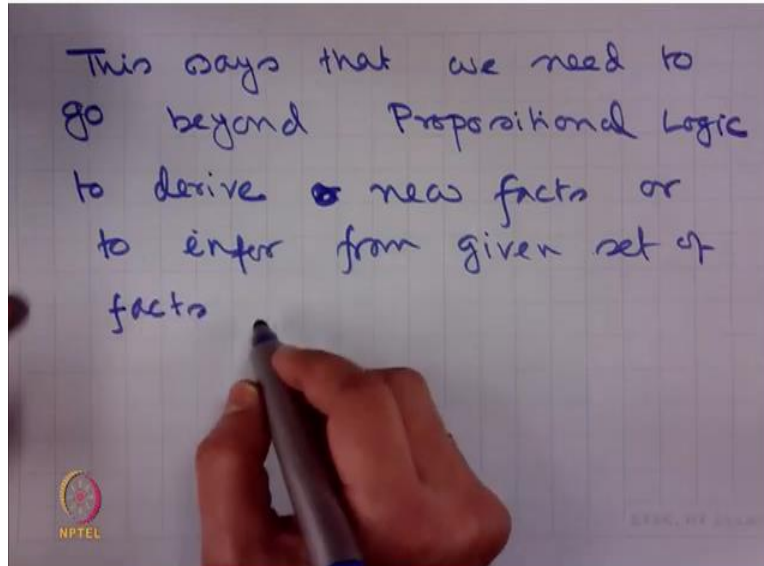 This says that we need to
go beyond Propositional Logic
to derive new facts or
to infer from given set of
facts
NPTEL